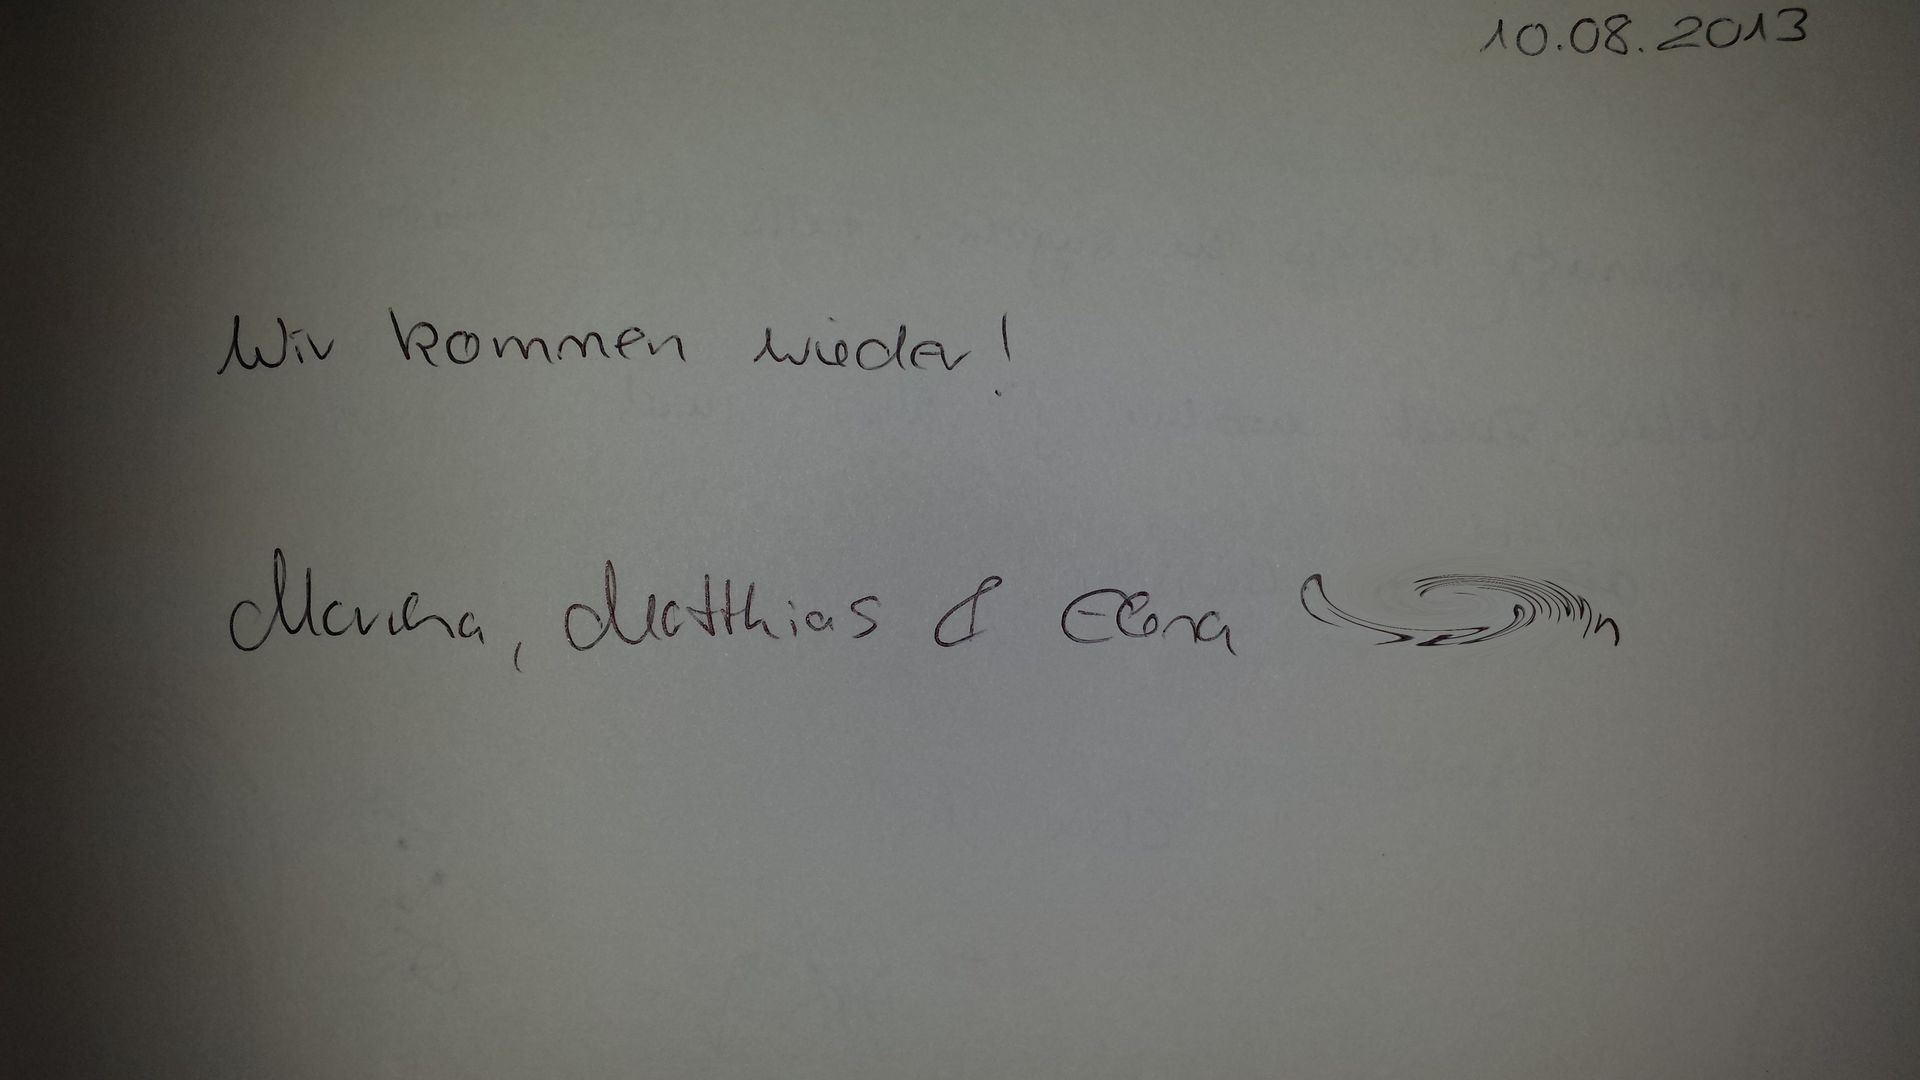 10.08.2013
Wir kommen wieder!
Marina, Matthias & Elena